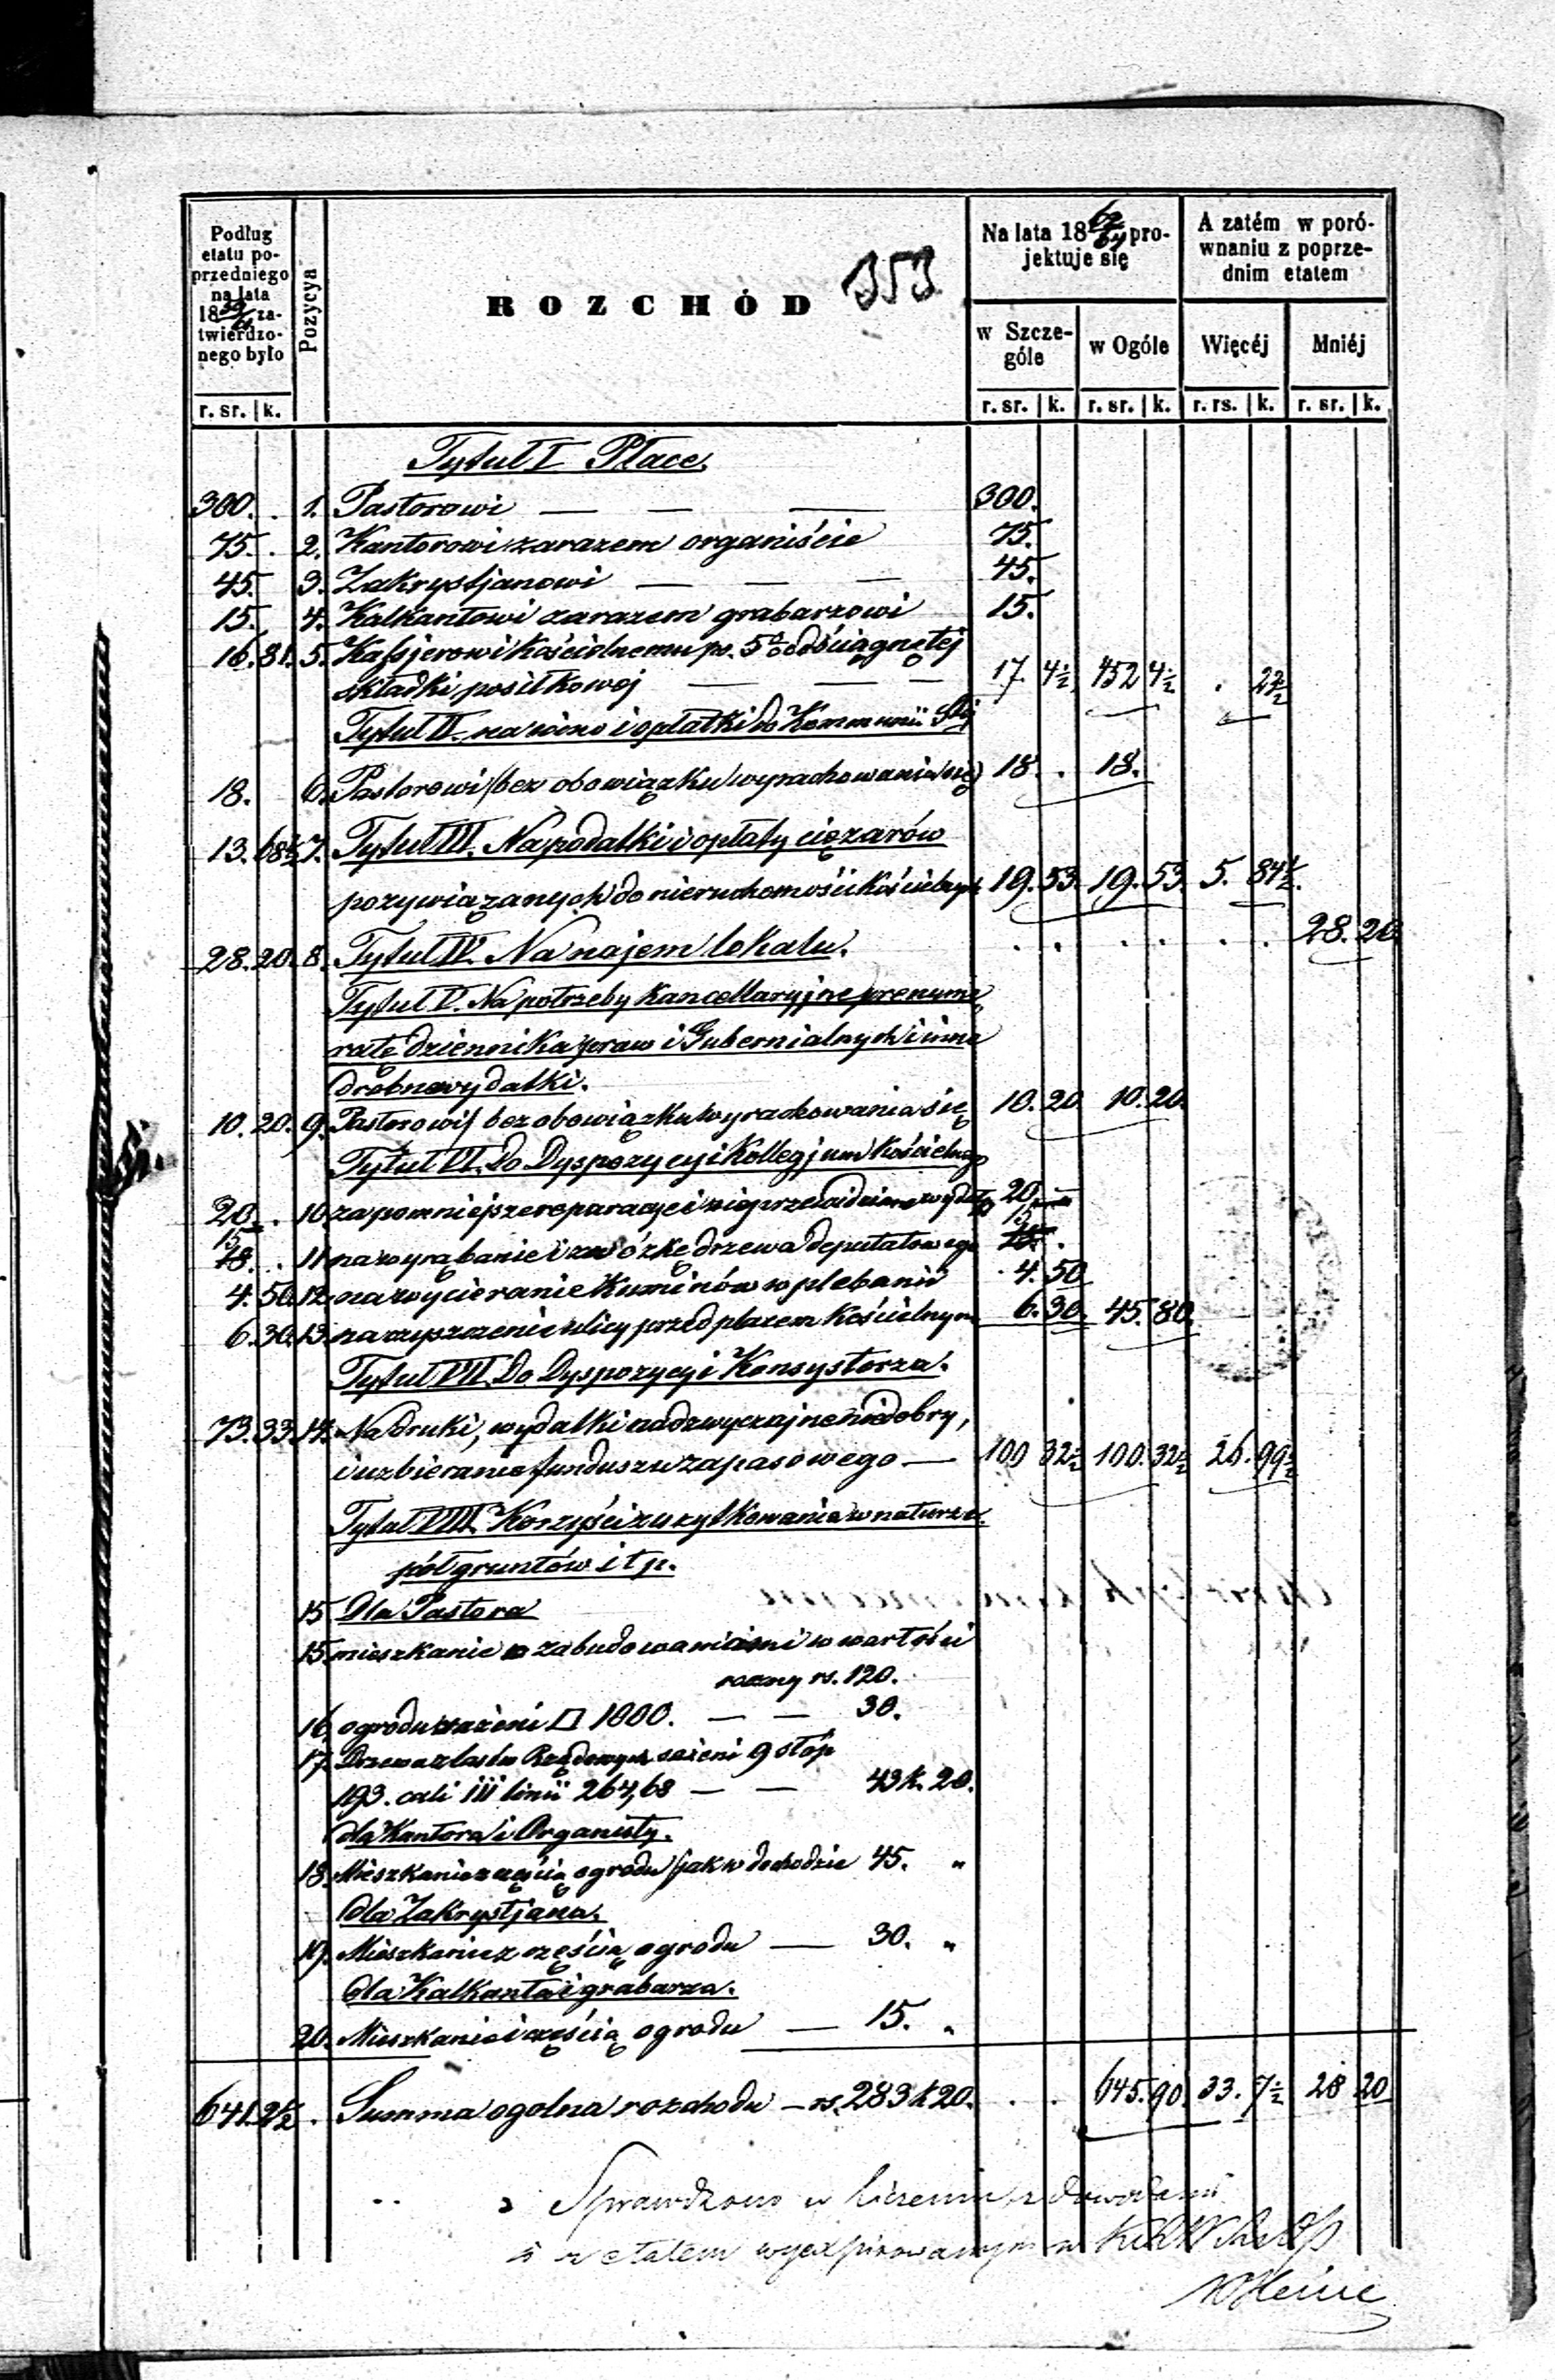 353
Podług etatu poprzedniego na lata 18 59/61 zatwierdzonego było
Pozycya
ROZCHÓD
Na lata 18 62/64 projektuje się
A zatém w porównaniu z poprzednim etatem
w Szczególe
w Ogóle
Więcéj
Mniéj
r. sr. k. r. sr. k. r. sr. k. r. rs. k. r. sr. k.
Tytuł I Płace.
300. . 1. Pastorowi — — — 300.
75. . 2. Kantorowi zarazem organiście 75.
45. 3. Zakrystjanowi — — — 45.
15. 4. Kalkantowi zarazem grabarzowi 15.
16. 81. 5. Kassjerowi Kościelnemu po 5% od ściągnętej
składki posiłkowej — — — 17. 4½ 452 4½ . 23½
Tytuł II na wino i opłatki do Kommunii Stej
18. 6. Pastorowi (bez obowiązku wyrachowania się) 18. . 18.
13. 68½ 7. Tytuł III. Na podatki i opłaty ciężarów
przywiązanych do nieruchomości Kościelnych 19. 53. 19. 53. 5. 84½.
28. 20. 8. Tytuł IV. Na najem lokalu. . . . . . . 28. 20.
Tytuł V. Na potrzeby Kancellaryjne prenume
ratę dziennika praw i Gubernialnych i inne
drobne wydatki.
10. 20. 9. Pastorowi bez obowiązku wyrachowania się 10. 20. 10. 20.
Tytuł VI. Do Dyspozycyi Kollegjum Kościelnego
20. . 10 za pomniejsze reparacye i nieprzewidziane wydatki 20.
15. 18. . 11 na wyrąbanie i zwózkę drzewa deputatowego 15.
4. 50. 12 na wycieranie Kominów w plebanii 4. 50
6. 30. 13. za czyszczenie ulicy przed placem Kościelnym 6. 30. 45. 80.
Tytuł VII. Do Dyspozycyi Konsystorza.
73. 33. 14. Na druki, wydatki nadzwyczajne niedobry,
i uzbieranie funduszu zapasowego — 100 32½ 100. 32½ 26. 99½
Tytuł VIII. Korzyści z użytkowania w naturze
pól gruntów i t p.
15 Dla Pastora
15. mieszkanie z zabudowaniami w wartości
roczny rs. 120.
16, ogrodu sążeni □ 1000. — — 30.
17. Drzewa z lasów Rządowych sążeni 9 stóp
193. cali III linii 264,68 — — 43 k. 20.
dla Kantora i Organisty.
18. Mieszkanie z częścią ogrodu jak w dochodzie 45. "
dla Zakrystjana.
19. Mieszkanie z częścią ogrodu — 30. "
dla Kalkanta i grabarza.
20. Mieszkanie i częścią ogrodu — 15. "
641. 2½ . Summa ogolna rozchodu — rs. 283 k 20. . . 645. 90. 33. 7½ 28 20
Sprawdzono w liczeniu z dowodami
i z etatem